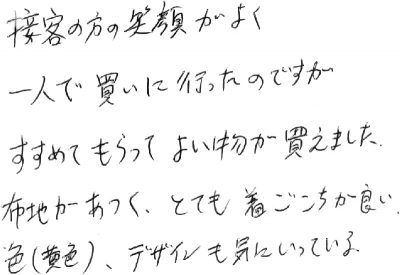 接客の方の笑顔がよく
一人で買いに行ったのですが
すすめてもらってよい物が買えました.
布地があつく、とても着ごこちが良い.
色(黄色)、デザインも気にいっている.